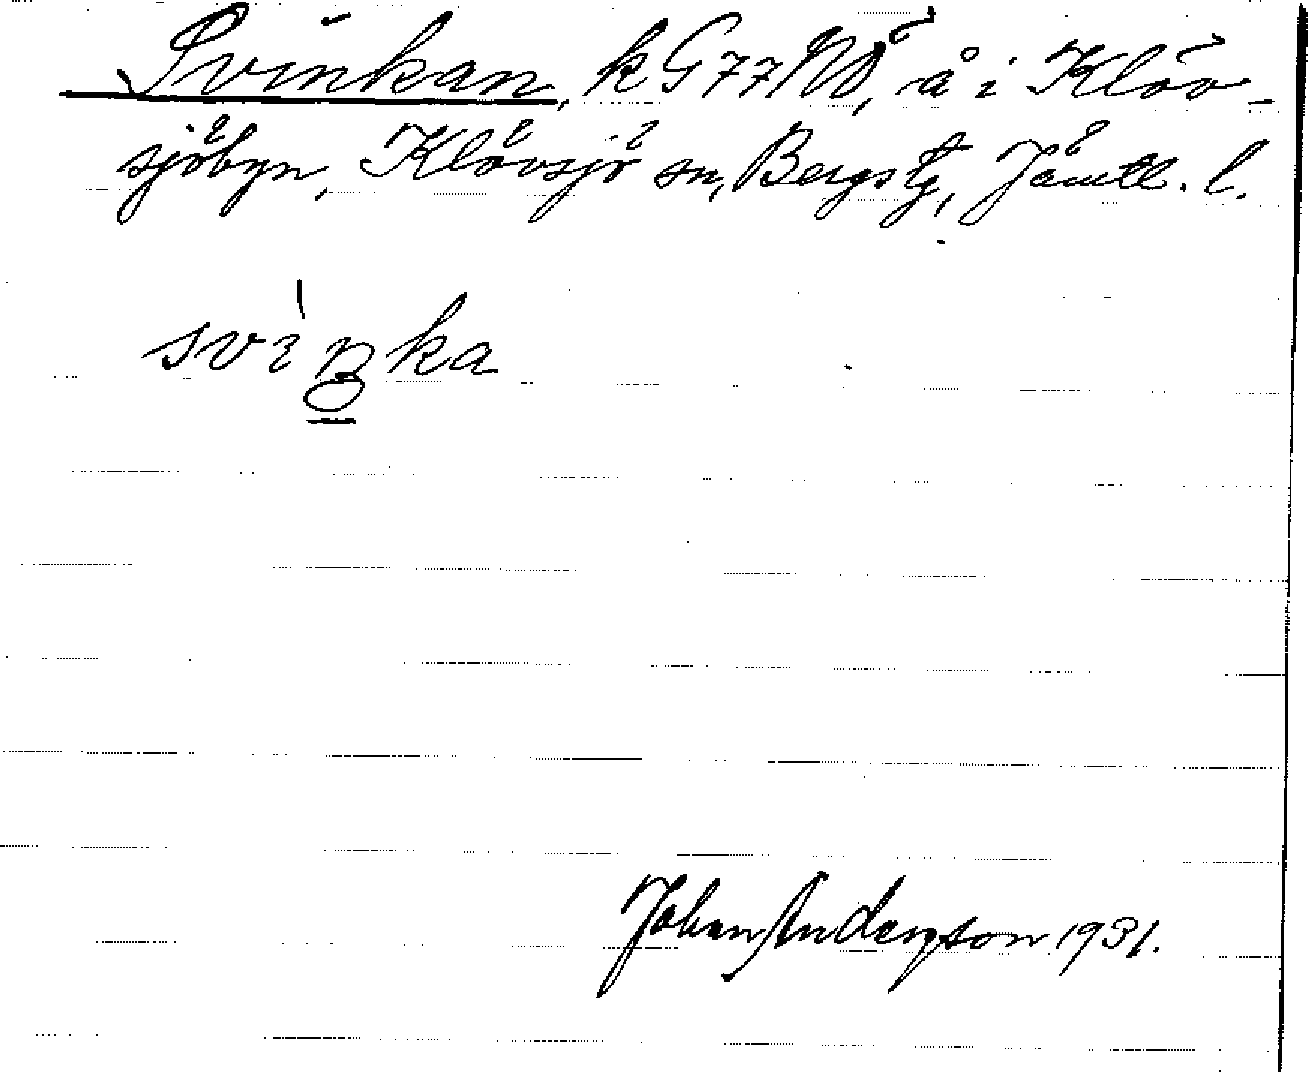 Svinkan, k G 77 NÖ, å i Klöv-
sjöbyn, Klövsjö sn, Bergs tg, Jämtl. l.
svinka
Johan Andersson 1931.